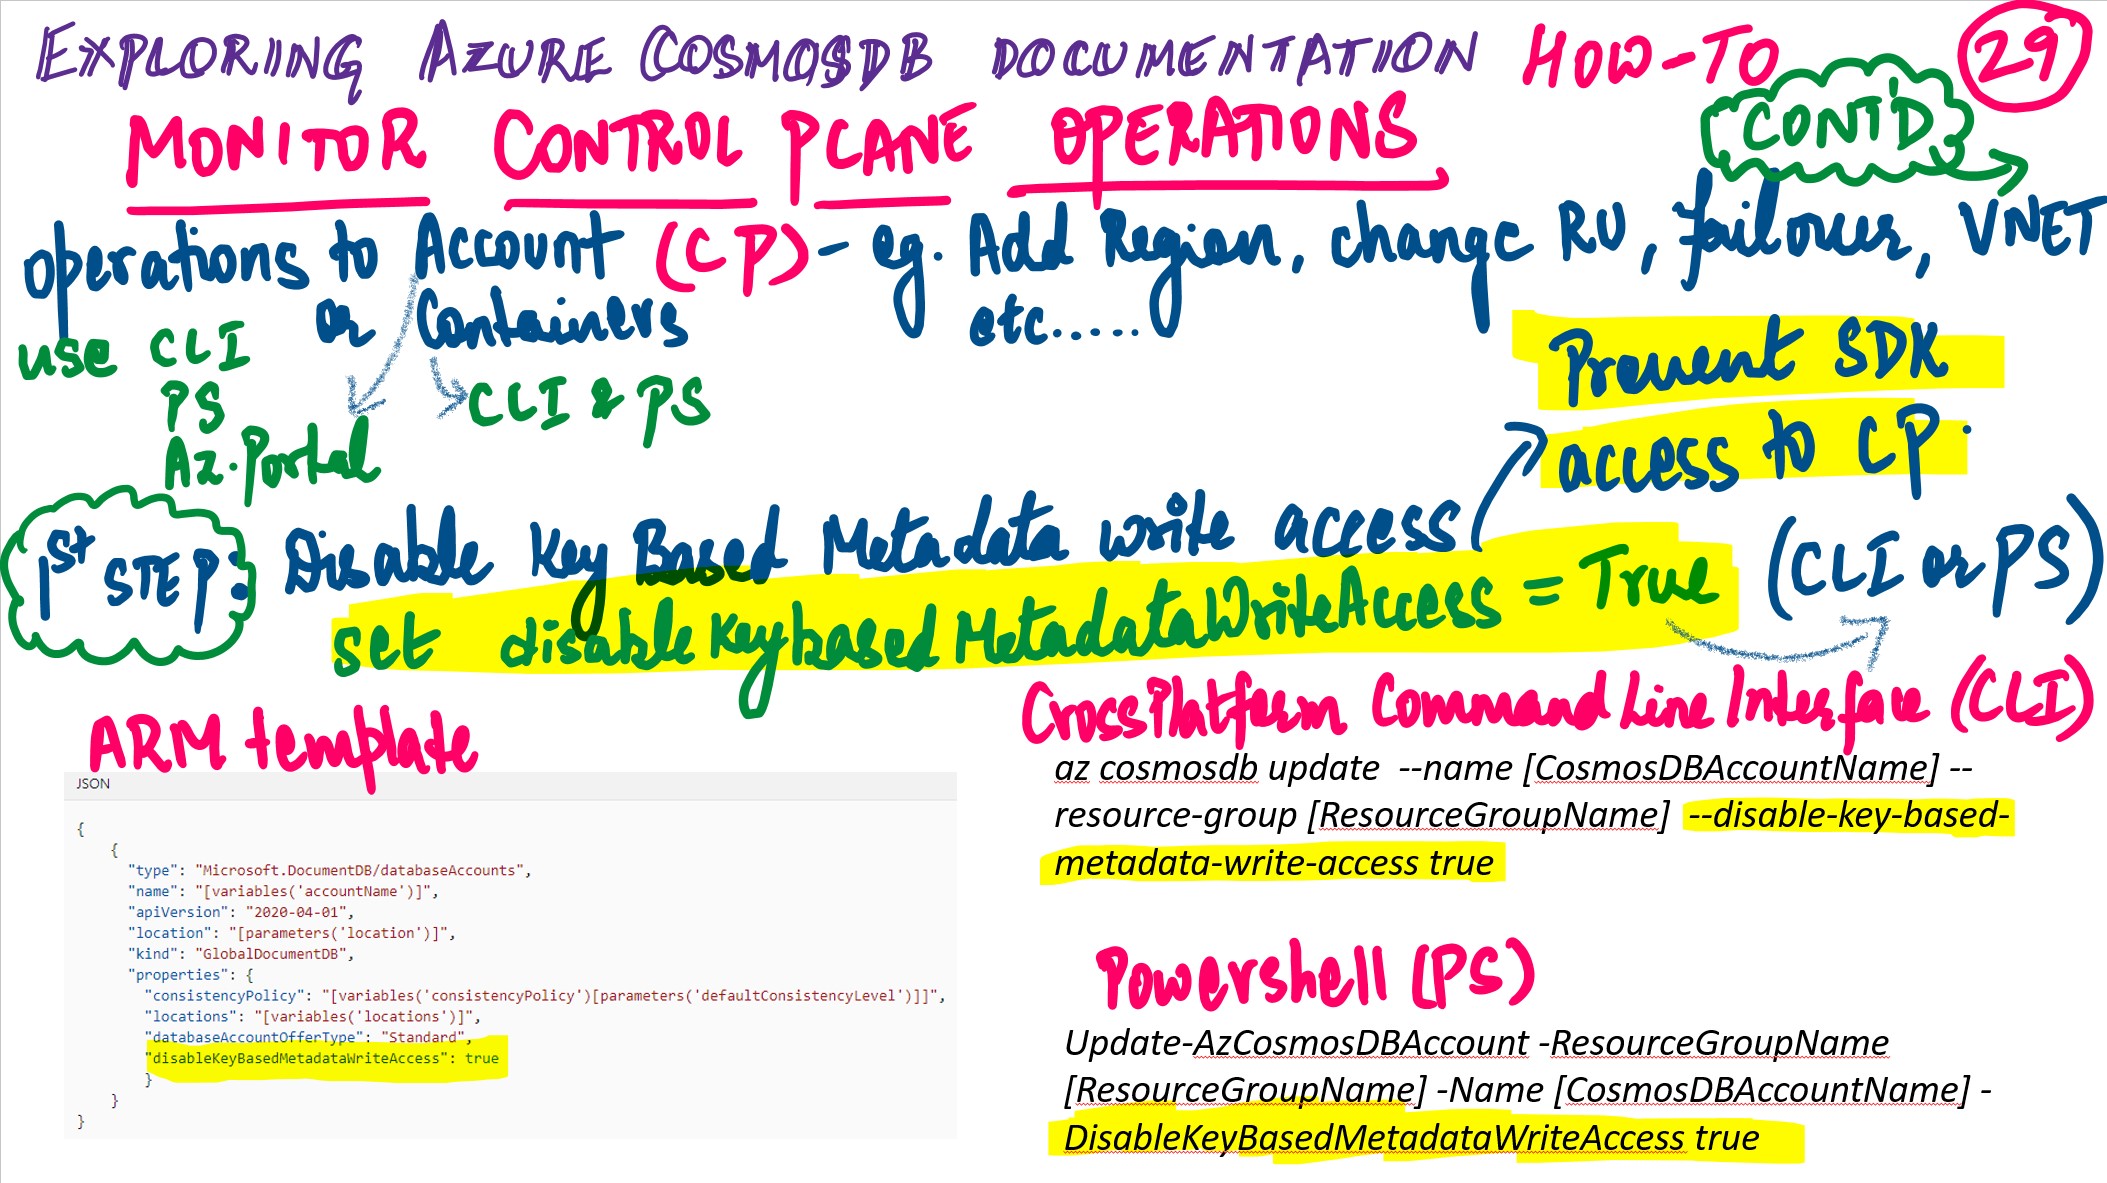 EXPLORING AZURE COSMOSDB DOCUMENTATION HOW-TO 29
MONITOR CONTROL PLANE OPERATIONS CONT'D
operations to Account (CP) - eg. Add Region, change RU, failover, VNET
or Containers etc.....
use CLI
PS
Az.Portal
CLI & PS
Prevent SDK
access to CP.
1st STEP: Disable Key Based Metadata write access
set disableKeybasedMetadataWriteAccess = True (CLI or PS)
ARM template
JSON
{
{
"type": "Microsoft.DocumentDB/databaseAccounts",
"name": "[variables('accountName')]",
"apiVersion": "2020-04-01",
"location": "[parameters('location')]",
"kind": "GlobalDocumentDB",
"properties": {
"consistencyPolicy": "[variables('consistencyPolicy')[parameters('defaultConsistencyLevel')]]",
"locations": "[variables('locations')]",
"databaseAccountOfferType": "Standard",
"disableKeyBasedMetadataWriteAccess": true
}
}
}
CrossPlatform Command Line Interface (CLI)
az cosmosdb update --name [CosmosDBAccountName] --
resource-group [ResourceGroupName] --disable-key-based-
metadata-write-access true
Powershell (PS)
Update-AzCosmosDBAccount -ResourceGroupName
[ResourceGroupName] -Name [CosmosDBAccountName] -
DisableKeyBasedMetadataWriteAccess true